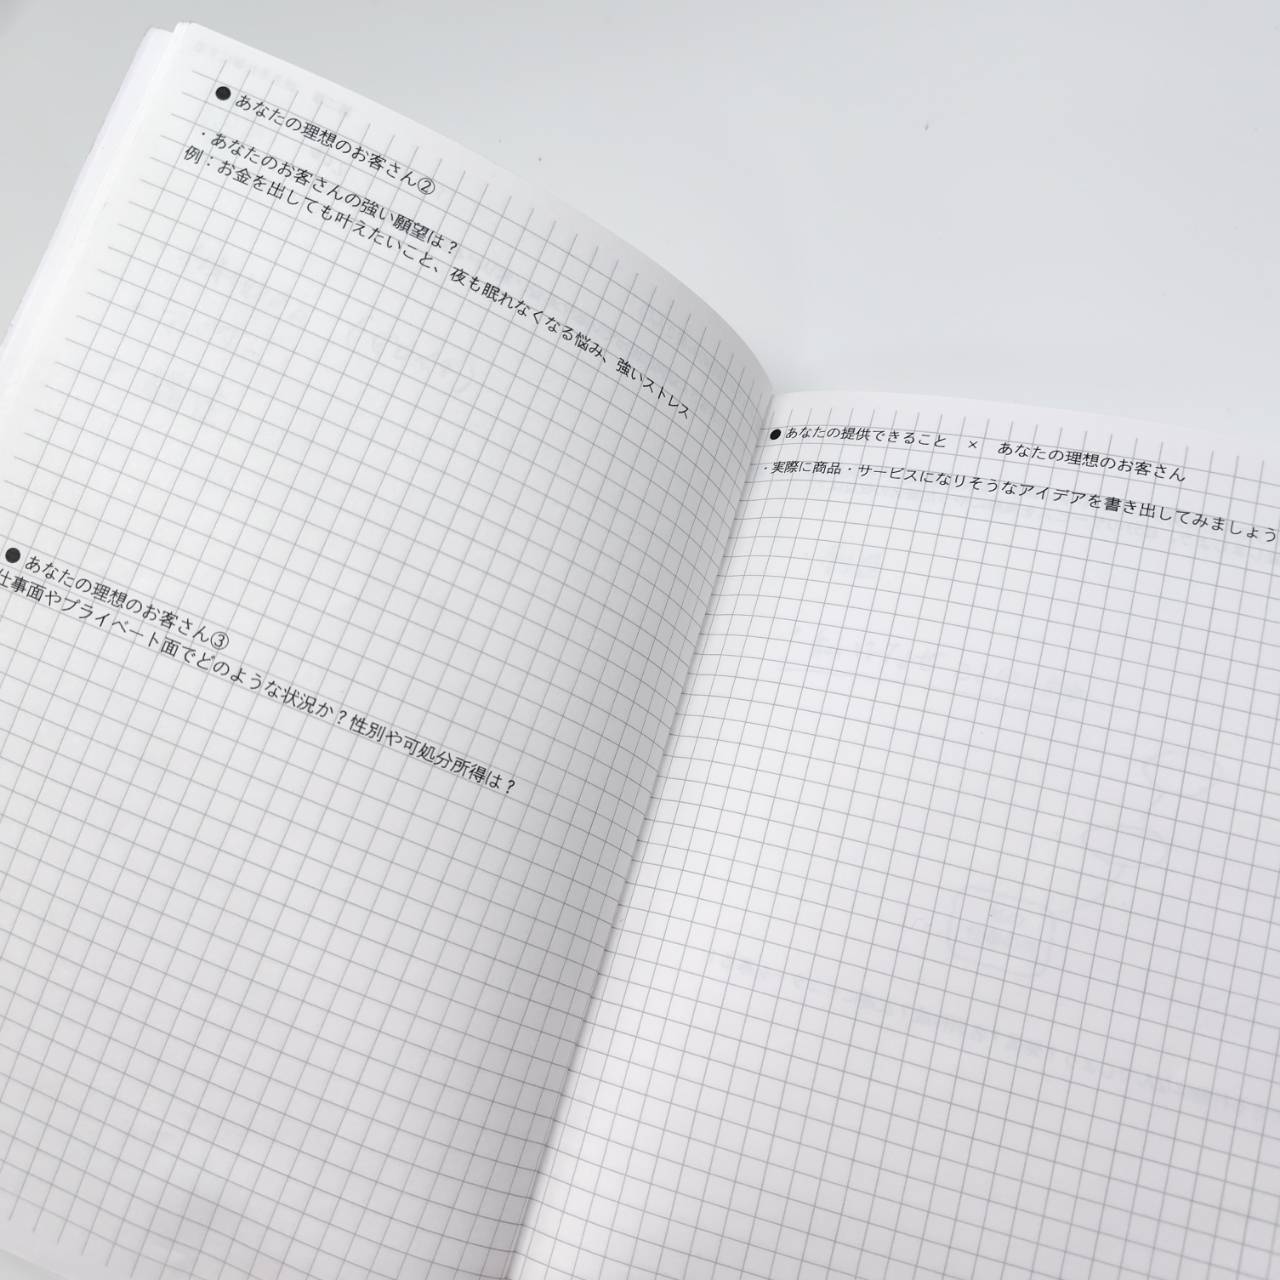 ●あなたの理想のお客さん②
・あなたのお客さんの強い願望は？
例：お金を出しても叶えたいこと、夜も眠れなくなる悩み、強いストレス
●あなたの理想のお客さん③
仕事面やプライベート面でどのような状況か？性別や可処分所得は？
●あなたの提供できること　×　あなたの理想のお客さん
・実際に商品・サービスになりそうなアイデアを書き出してみましょう